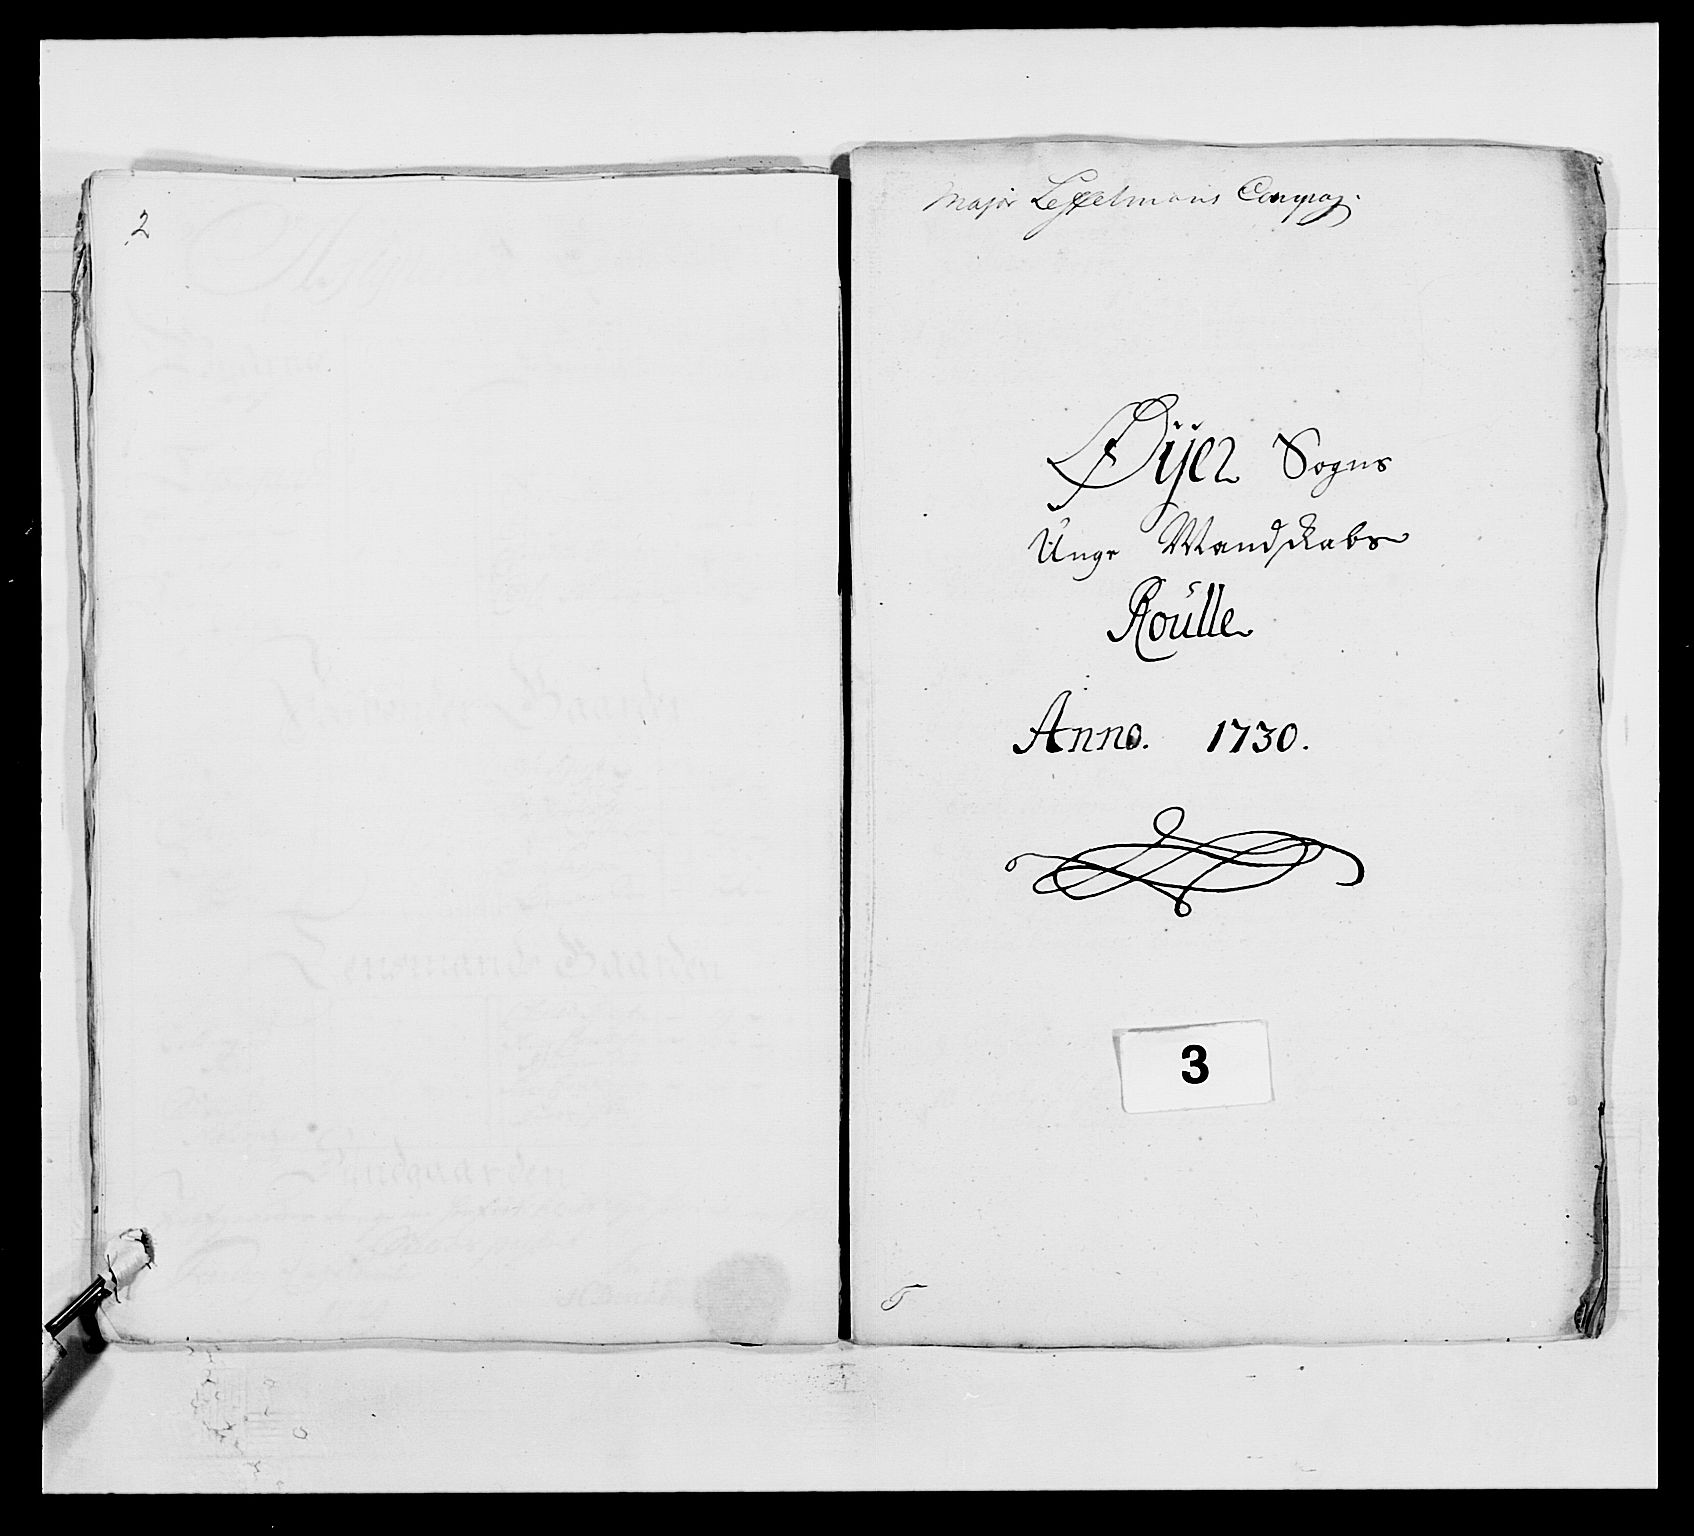 2
Major Compag.
Øÿer Sogns
Unge Mandskabs
Roülle
Anno. 1730.
3